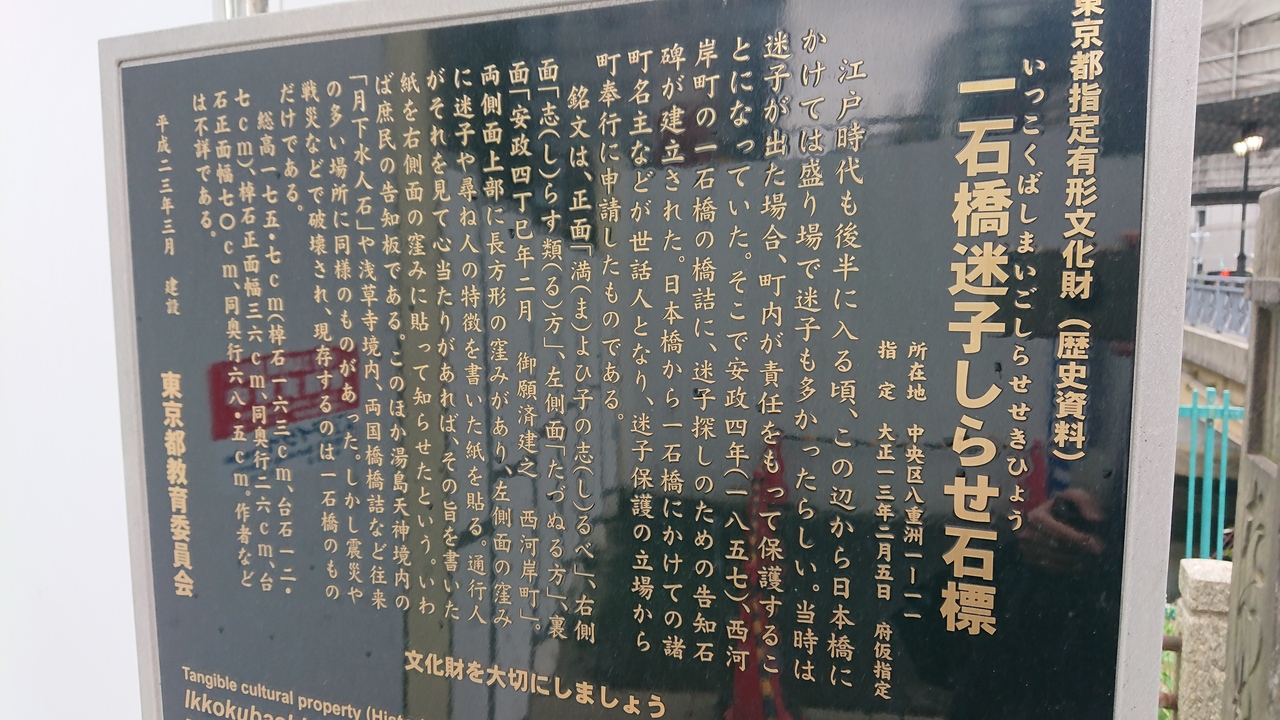 東京都指定有形文化財（歴史資料）
いっこくばしまいごしらせせきひょう
一石橋迷子しらせ石標
所在地　中央区八重洲一ー一一
指　定　大正一三年二月五日　府仮指定
江戸時代も後半に入る頃、この辺から日本橋に
かけては盛り場で迷子も多かったらしい。当時は
迷子が出た場合、町内が責任をもって保護するこ
とになっていた。そこで安政四年（一八五七）、西河
岸町の一石橋の橋詰に、迷子探しのための告知石
碑が建立された。日本橋から一石橋にかけての諸
町名主などが世話人となり、迷子保護の立場から
町奉行に申請したものである。
銘文は、正面「満（ま）よひ子の志（し）るべ」、右側
面「志（し）らす類（る）方」、左側面「たづぬる方」、裏
面「安政四丁巳年二月　御願済建之　西河岸町」。
両側面上部に長方形の窪みがあり、左側面の窪み
に迷子や尋ね人の特徴を書いた紙を貼る。通行人
がそれを見て心当たりがあれば、その旨を書いた
紙を右側面の窪みに貼って知らせたという。いわ
ば庶民の告知板である。このほか湯島天神境内の
「月下水人石」や浅草寺境内、両国橋詰など往来
の多い場所に同様のものがあった。しかし震災や
戦災などで破壊され、現存するのは一石橋のもの
だけである。
総高一七五・七cm（棹石一六三cm、台石一二・
七cm）、棹石正面幅三六cm、同奥行二六cm、台
石正面幅七〇cm、同奥行六八・五cm。作者など
は不詳である。
平成二三年三月　建設
東京都教育委員会
文化財を大切にしましょう
Tangible cultural property